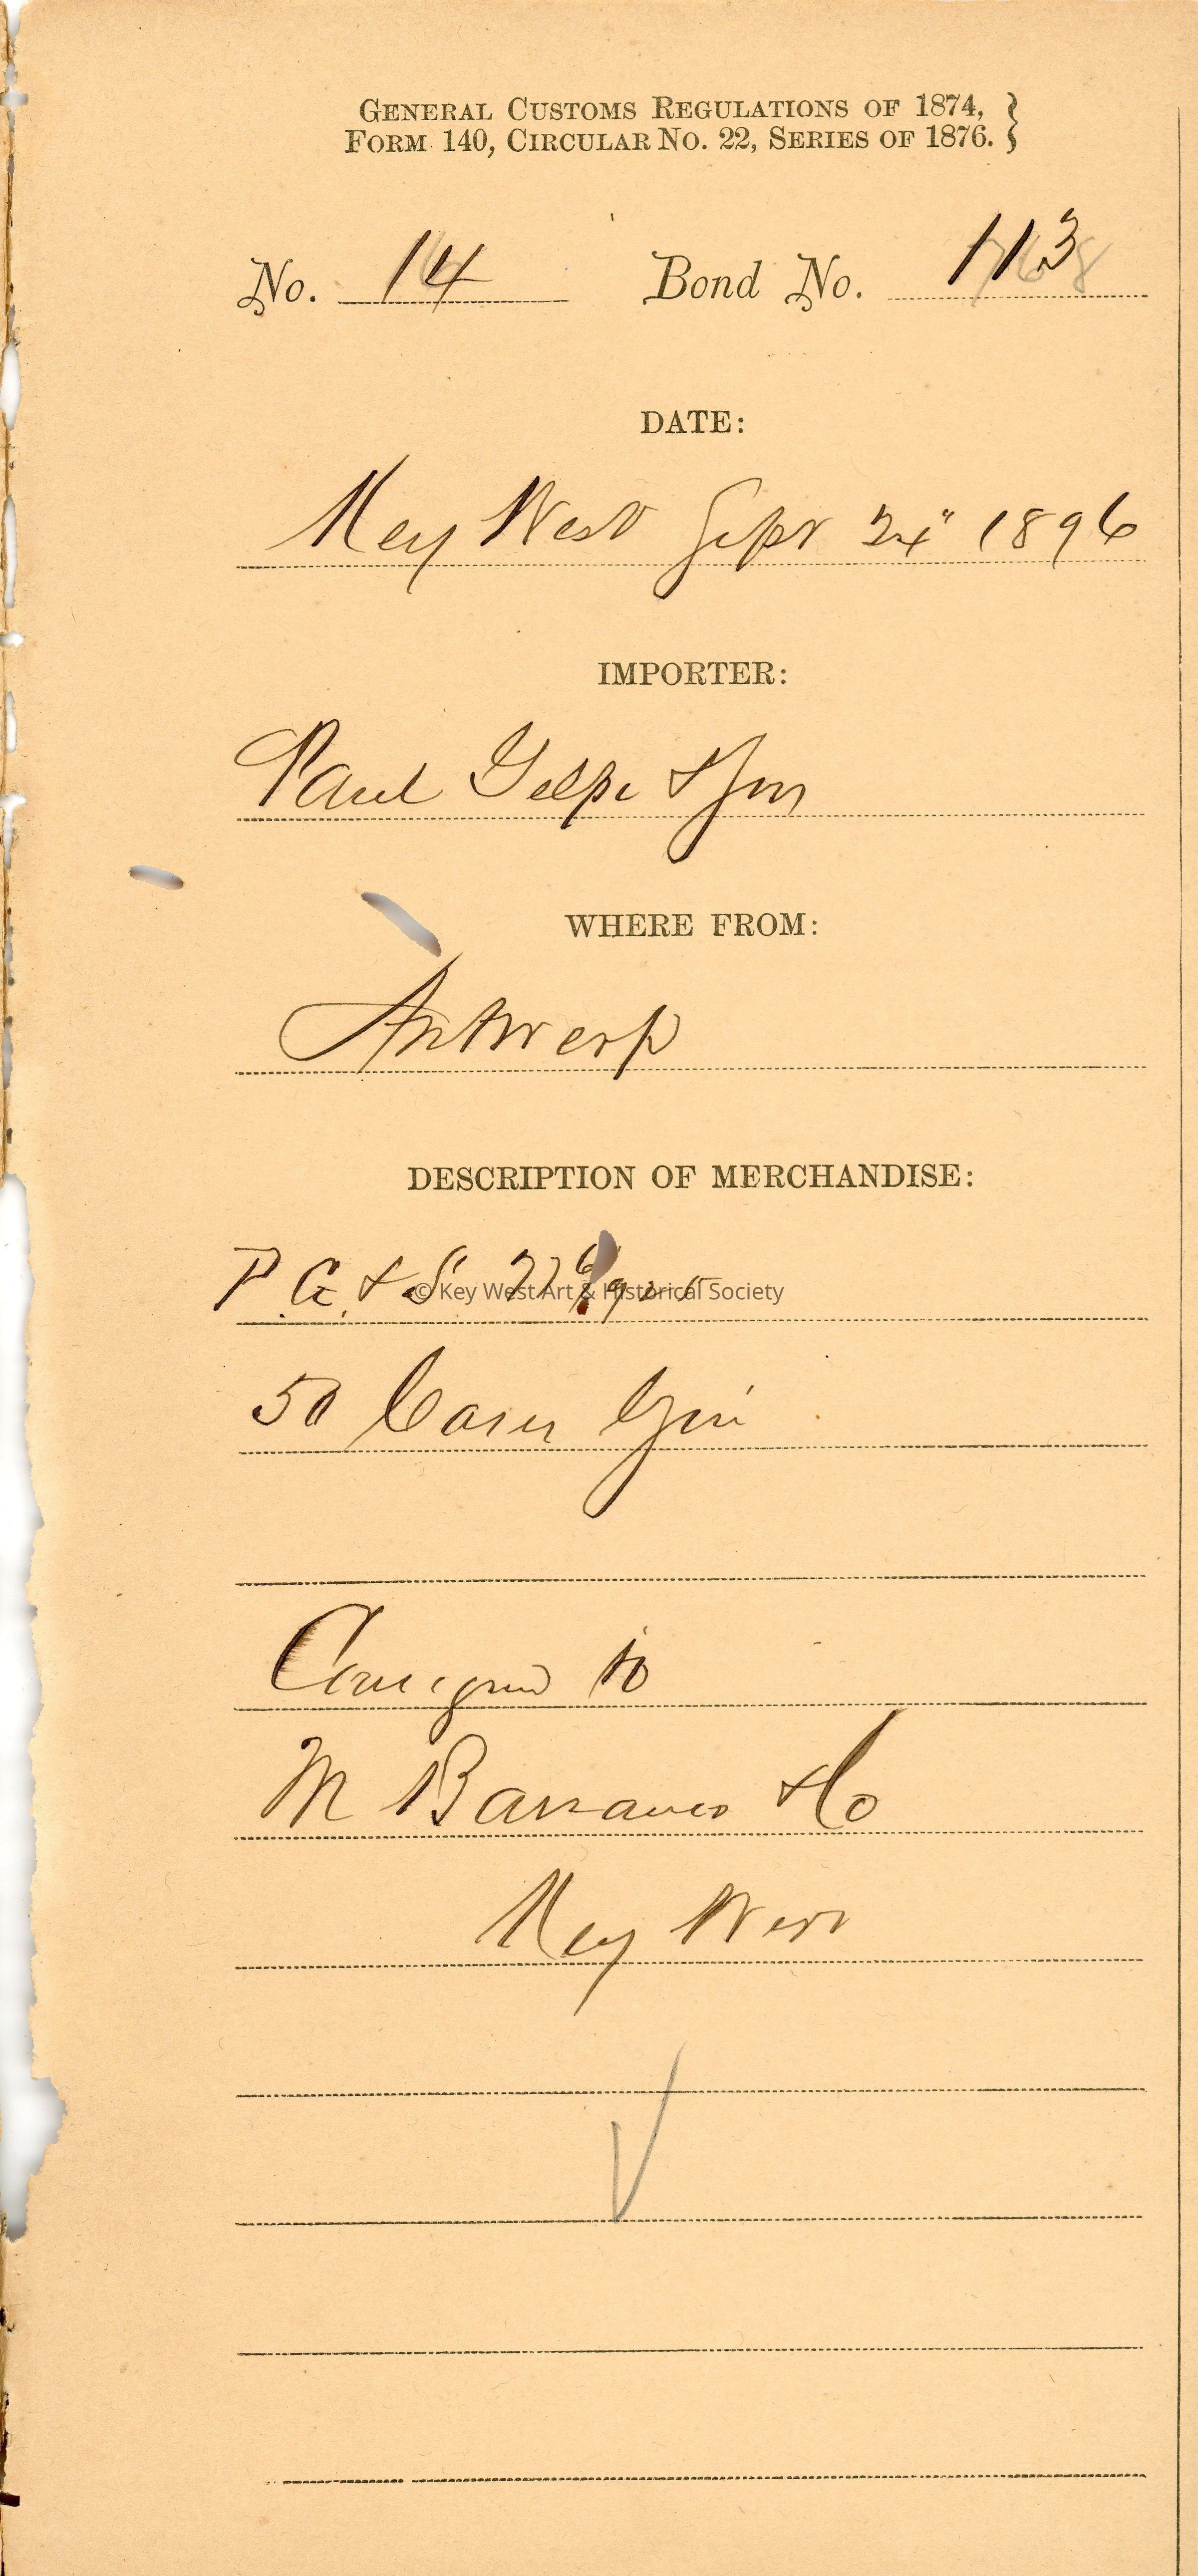 GENERAL CUSTOMS REGULATIONS OF 1874,
FORM 140, CIRCULAR No. 22, SERIES OF 1876. }
No. 14 Bond No. 113
DATE:
Key West Sept 24" 1896
IMPORTER:
Paul Gelpi & Son
WHERE FROM:
Antwerp
DESCRIPTION OF MERCHANDISE:
P. G. & S.
© Key West Art & Historical Society
50 Cases Gin
Consigned to
M Barranco & Co
Key West